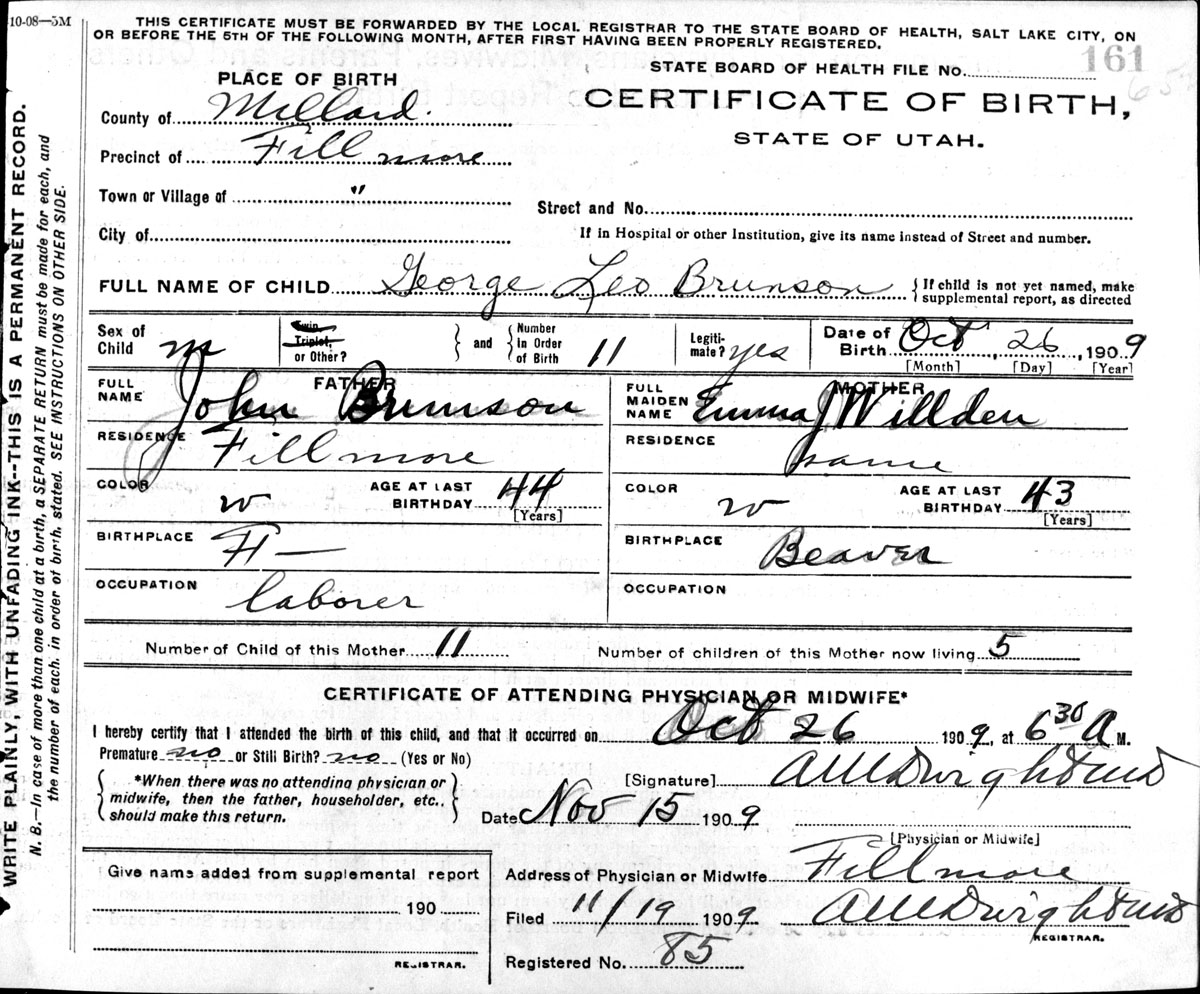 10-08—5M
THIS CERTIFICATE MUST BE FORWARDED BY THE LOCAL REGISTRAR TO THE STATE BOARD OF HEALTH, SALT LAKE CITY, ON
OR BEFORE THE 5TH OF THE FOLLOWING MONTH, AFTER FIRST HAVING BEEN PROPERLY REGISTERED.
WRITE PLAINLY, WITH UNFADING INK--THIS IS A PERMANENT RECORD.
N. B.—In case of more than one child at a birth, a SEPARATE RETURN must be made for each, and
the number of each. in order of birth. stated. SEE INSTRUCTIONS ON OTHER SIDE.
PLACE OF BIRTH
STATE BOARD OF HEALTH FILE NO. 161
CERTIFICATE OF BIRTH,
STATE OF UTAH.
County of Millard.
Precinct of Fillmore
Town or Village of "
Street and No.
City of
If in Hospital or other Institution, give its name instead of Street and number.
FULL NAME OF CHILD George Leo Brunson { If child is not yet named, make
supplemental report, as directed
Sex of Child m
Twin, Triplet, or Other? } and { Number In Order of Birth 11
Legitimate? yes
Date of Birth Oct, 26, 1909
[Month] [Day] [Year]
FATHER
FULL NAME John Brunson
RESIDENCE Fillmore
COLOR w AGE AT LAST BIRTHDAY 44
[Years]
BIRTHPLACE Fl—
OCCUPATION laborer
MOTHER
FULL MAIDEN NAME Emma J Willden
RESIDENCE same
COLOR w AGE AT LAST BIRTHDAY 43
[Years]
BIRTHPLACE Beaver
OCCUPATION
Number of Child of this Mother 11 Number of children of this Mother now living 5
CERTIFICATE OF ATTENDING PHYSICIAN OR MIDWIFE*
I hereby certify that I attended the birth of this child, and that it occurred on Oct 26 1909, at 6 30 A M.
Premature no or Still Birth? no (Yes or No)
{ *When there was no attending physician or
midwife, then the father, householder, etc.,
should make this return. }
[Signature]
Date Nov 15 1909
[Physician or Midwife]
Give name added from supplemental report
190
REGISTRAR.
Address of Physician or Midwife Fillmore
Filed 11/19 1909
REGISTRAR.
Registered No. 85